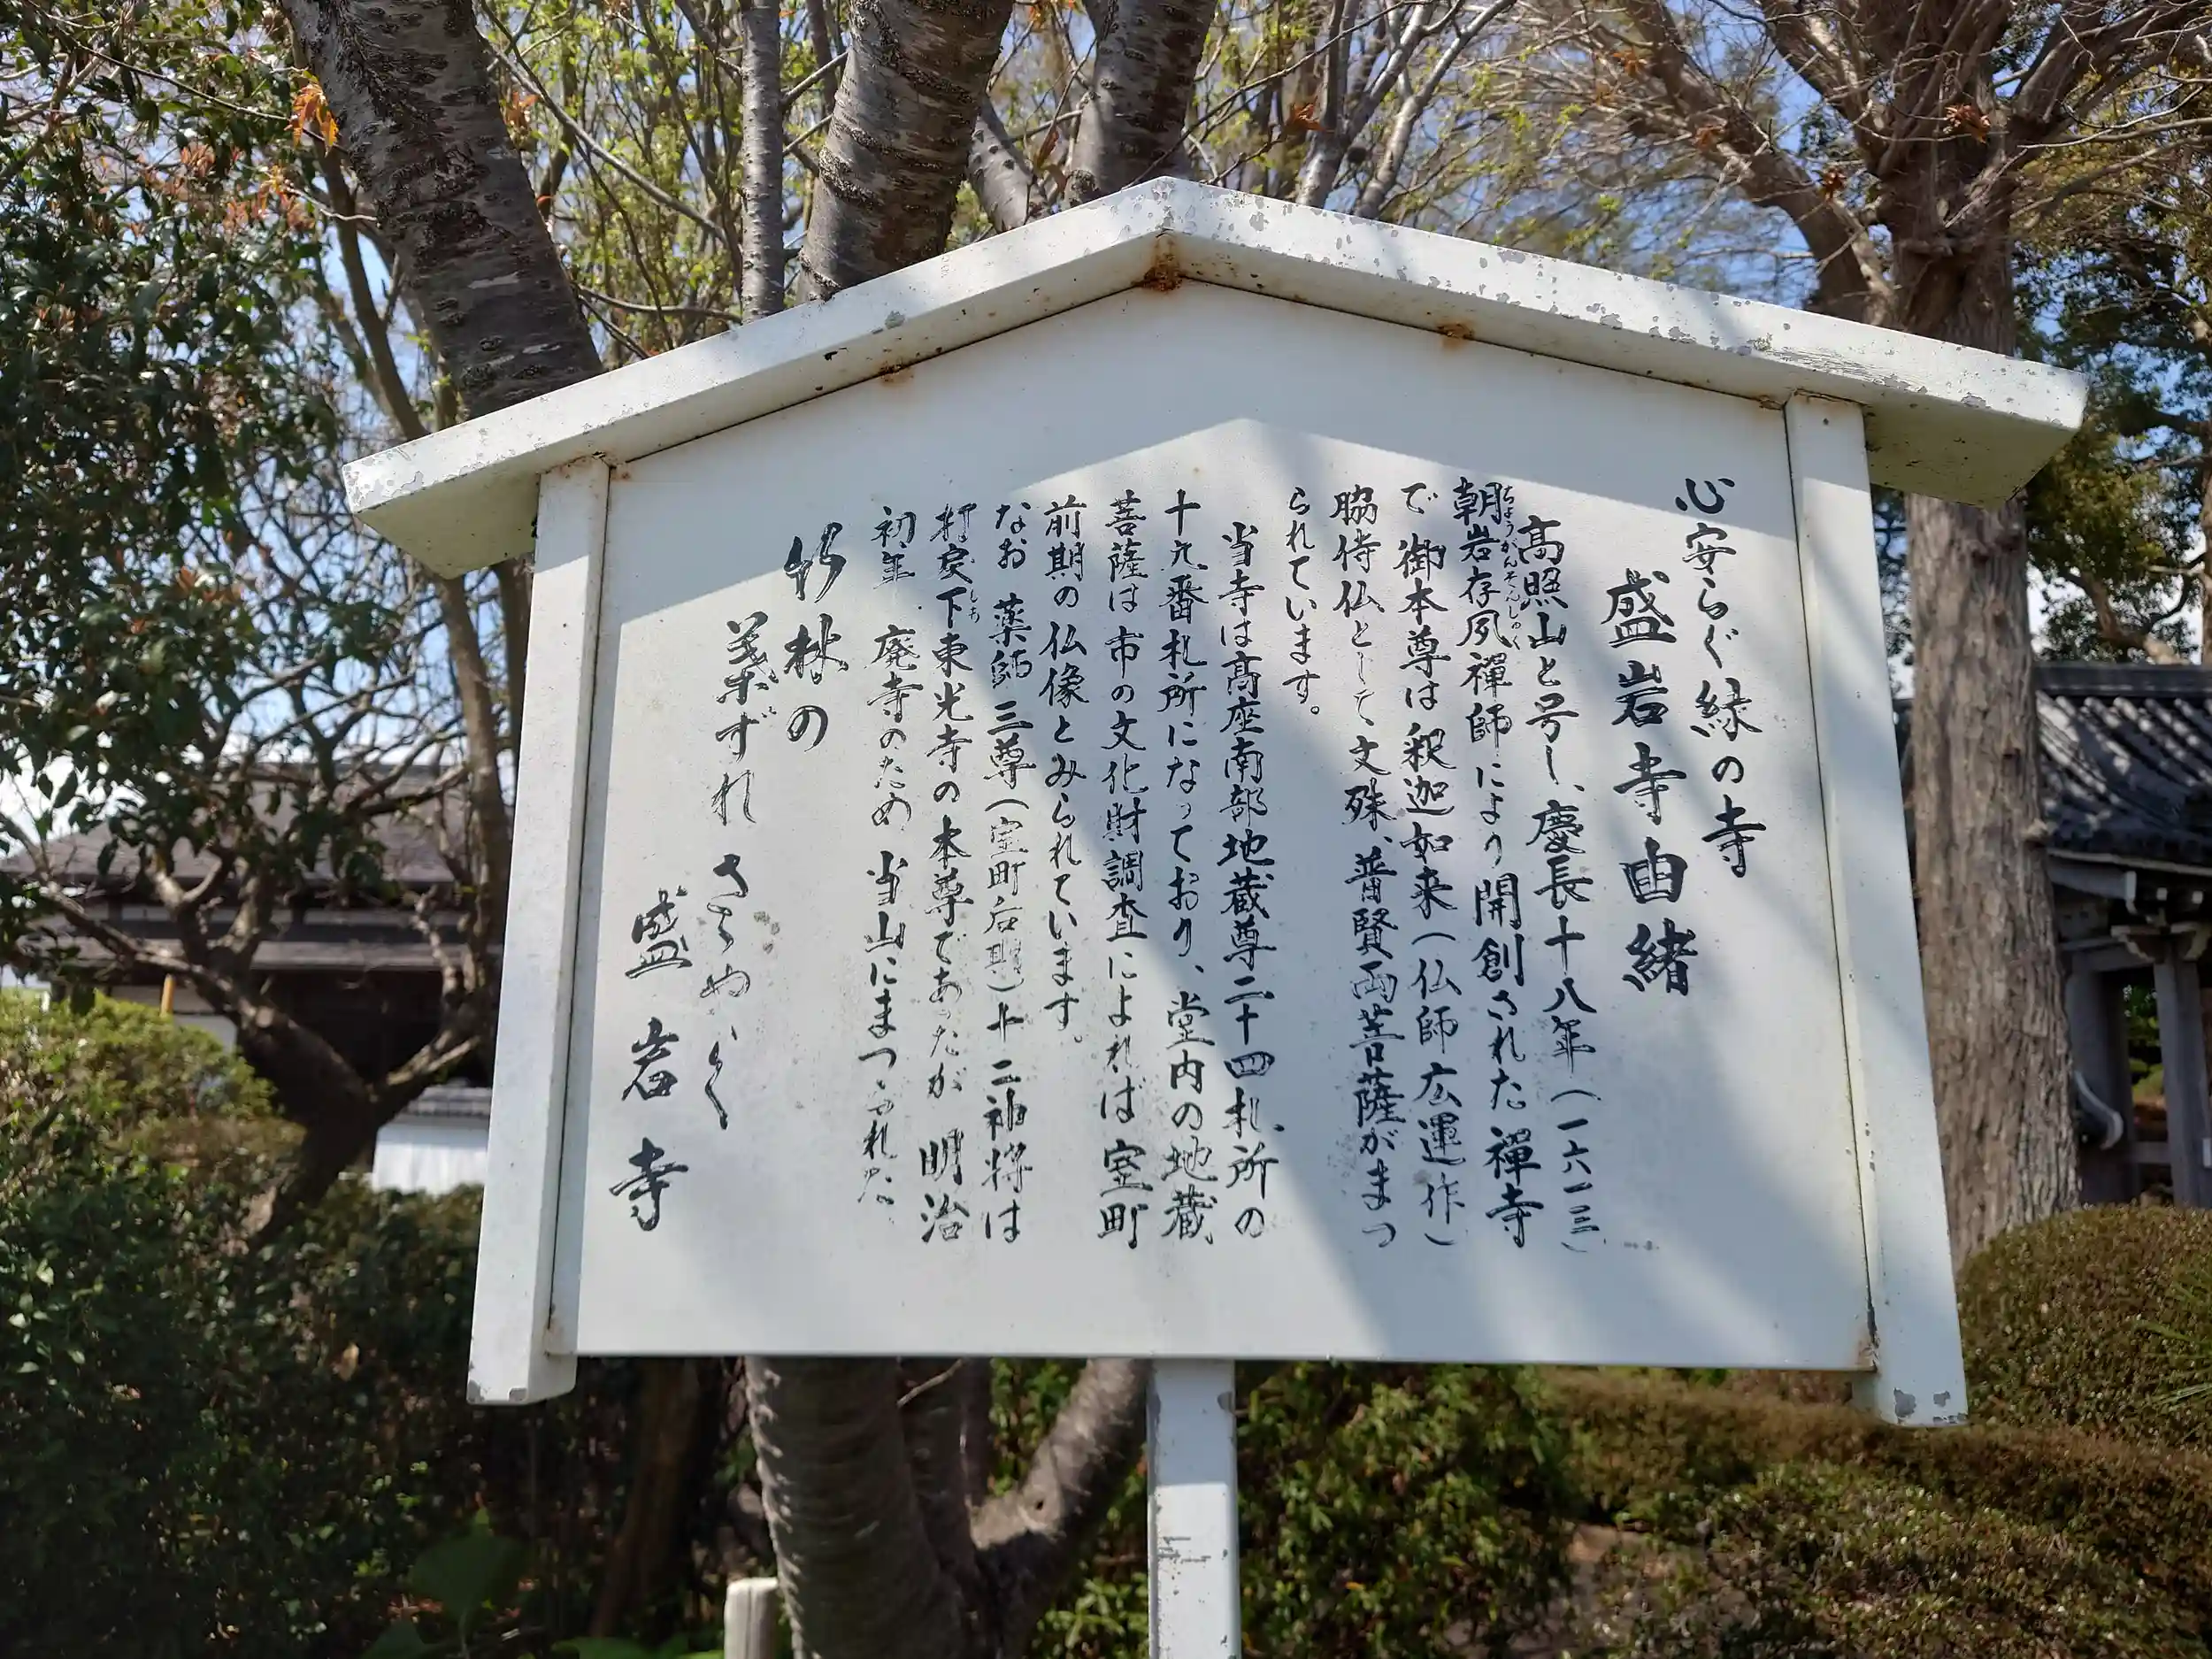 心安らぐ緑の寺
盛岩寺由緒
高照山と号し、慶長十八年(一六一三)
朝岩存夙禅師により開創された禅寺
ちょうがんそんしゅく
で御本尊は釈迦如来(仏師広運作)
脇侍仏として文殊、普賢両菩薩がまつ
られています。
当寺は高座南部地蔵尊二十四札所の
十九番札所になっており、堂内の地蔵
菩薩は市の文化財調査によれば室町
前期の仏像とみられています。
なお薬師三尊(室町后期)十二神将は
打戻下東光寺の本尊であったが明治
しも
初年廃寺のため当山にまつられた
竹林の
葉ずれ
盛岩寺